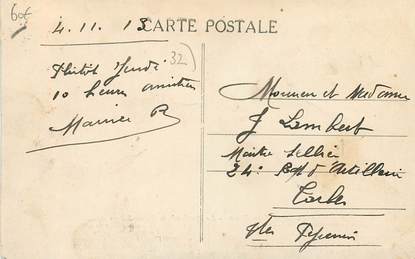 60f
4.11.13
CARTE POSTALE
32
Plutôt Jeudi
10 heures amitiés
Maurice R
Monsieur et Madame
J Lambert
Maitre Sellier
24e d'Artillerie
Tarbes
Htes Pyrénées